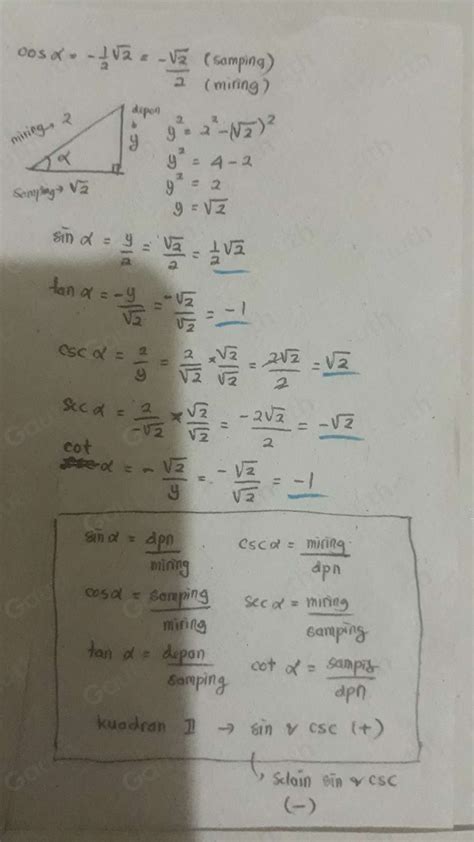 cos α = -1/2 √2 = -√2/2 (samping)
(miring)
miring → 2
depan
y
α
samping → √2
y² = 2² - (√2)²
y² = 4 - 2
y² = 2
y = √2
sin α = y/2 = √2/2 = 1/2 √2
tan α = -y/√2 = -√2/√2 = -1
csc α = 2/y = 2/√2 × √2/√2 = 2√2/2 = √2
sec α = 2/-√2 × √2/√2 = -2√2/2 = -√2
cot α = -√2/y = -√2/√2 = -1
sin α = dpn/miring
csc α = miring/dpn
cos α = samping/miring
sec α = miring/samping
tan α = depan/samping
cot α = /dpn
kuadran II → sin & csc (+)
↳ selain sin & csc
(-)